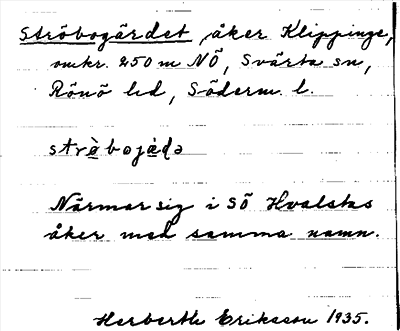 Ströbogärdet, åker Klippinge,
omkr. 250 m NÖ, Svärta sn,
Rönö hd, Söderm. l.
strø̀bojàdə
Närmar sig i SÖ Hvalstas
åker med samma namn.
Herberth Eriksson 1935.